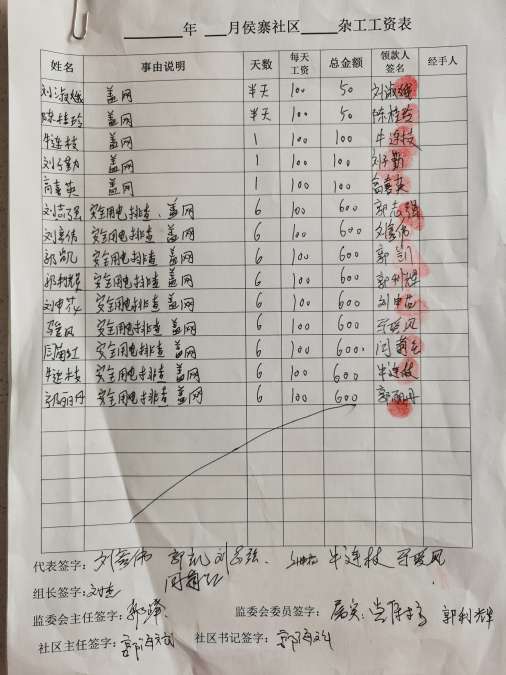 年 月侯寨社区 杂工工资表
姓名 事由说明 天数 每天工资 总金额 领款人签名 经手人
刘淑娥 盖网 半天 100 50 刘淑娥
陈桂玲 盖网 半天 100 50 陈桂玲
牛连枝 盖网 1 100 100 牛连枝
盖网 1 100 100
高喜英 盖网 1 100 100 高喜英
安全用电排查、盖网 6 100 600 郭志强
刘彦伟 安全用电排查 盖网 6 100 600 刘彦伟
郭凯 安全用电排查 盖网 6 100 600 郭凯
郭利辉 安全用电排查 盖网 6 100 600 郭利辉
安全用电排查 盖网 6 100 600
安全用电排查 盖网 6 100 600
安全用电排查 盖网 6 100 600
牛连枝 安全用电排查 盖网 6 100 600 牛连枝
郭丽丹 安全用电排查 盖网 6 100 600 郭丽丹
代表签字：刘彦伟 郭凯 牛连枝
组长签字：
监委会主任签字： 监委会委员签字： 郭利辉
社区主任签字： 社区书记签字：